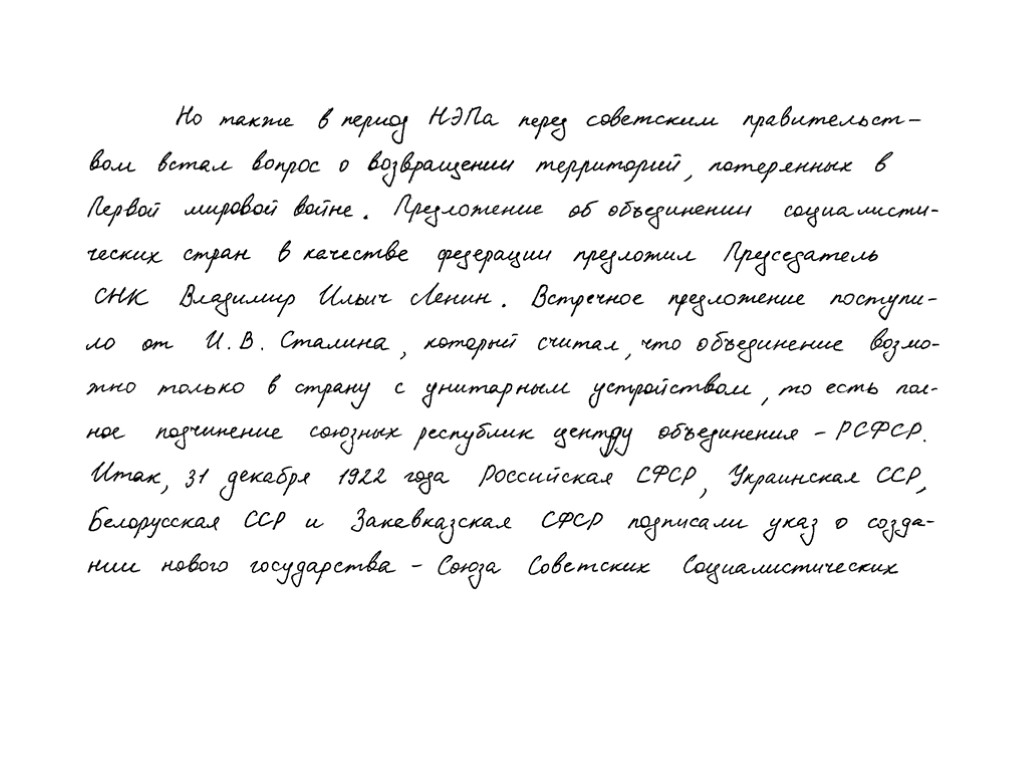 Но также в период НЭПа перед советским правительст-
вом встал вопрос о возвращении территорий, потерянных в
Первой мировой войне. Предложение об объединении социалисти-
ческих стран в качестве федерации предложил Председатель
СНК Владимир Ильич Ленин. Встречное предложение поступи-
ло от И. В. Сталина, который считал, что объединение возмо-
жно только в страну с унитарным устройством, то есть пол-
ное подчинение союзных республик центру объединения – РСФСР.
Итак, 31 декабря 1922 года Российская СФСР, Украинская ССР,
Белорусская ССР и Закавказская СФСР подписали указ о созда-
нии нового государства – Союза Советских Социалистических